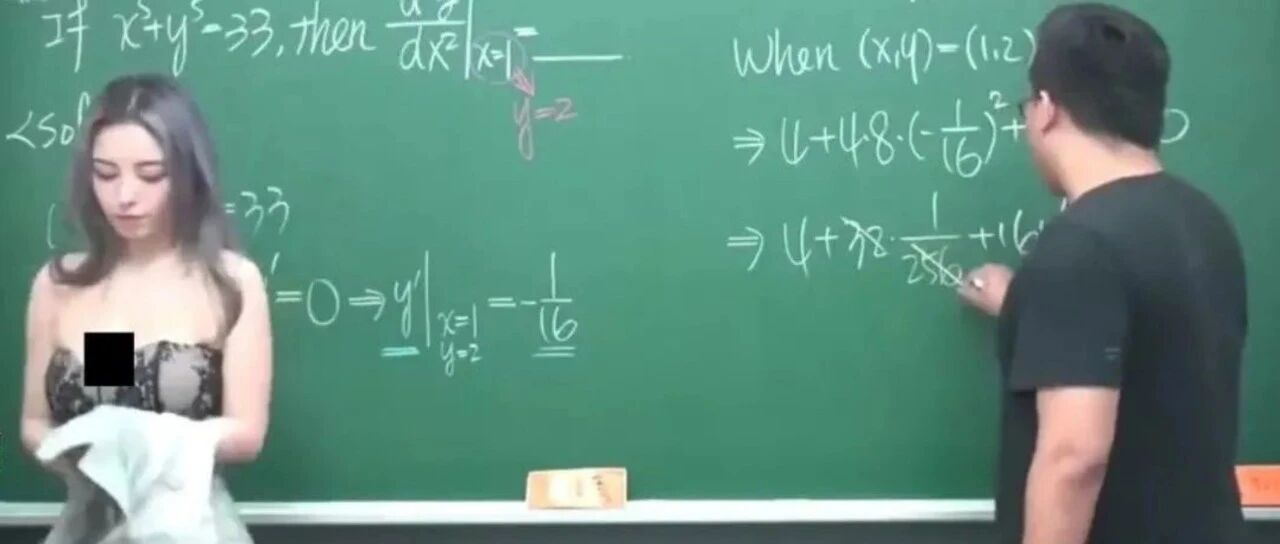 If x⁵+y⁵=33, then d²y/dx²|x=1 = ____
y=2
<Sol
=33
'=0 ⇒ y'|x=1, y=2 = -1/16
When (x,y)=(1,2)
⇒ 4+4·8·(-1/16)²+ 0
⇒ 4+38·1/256+16